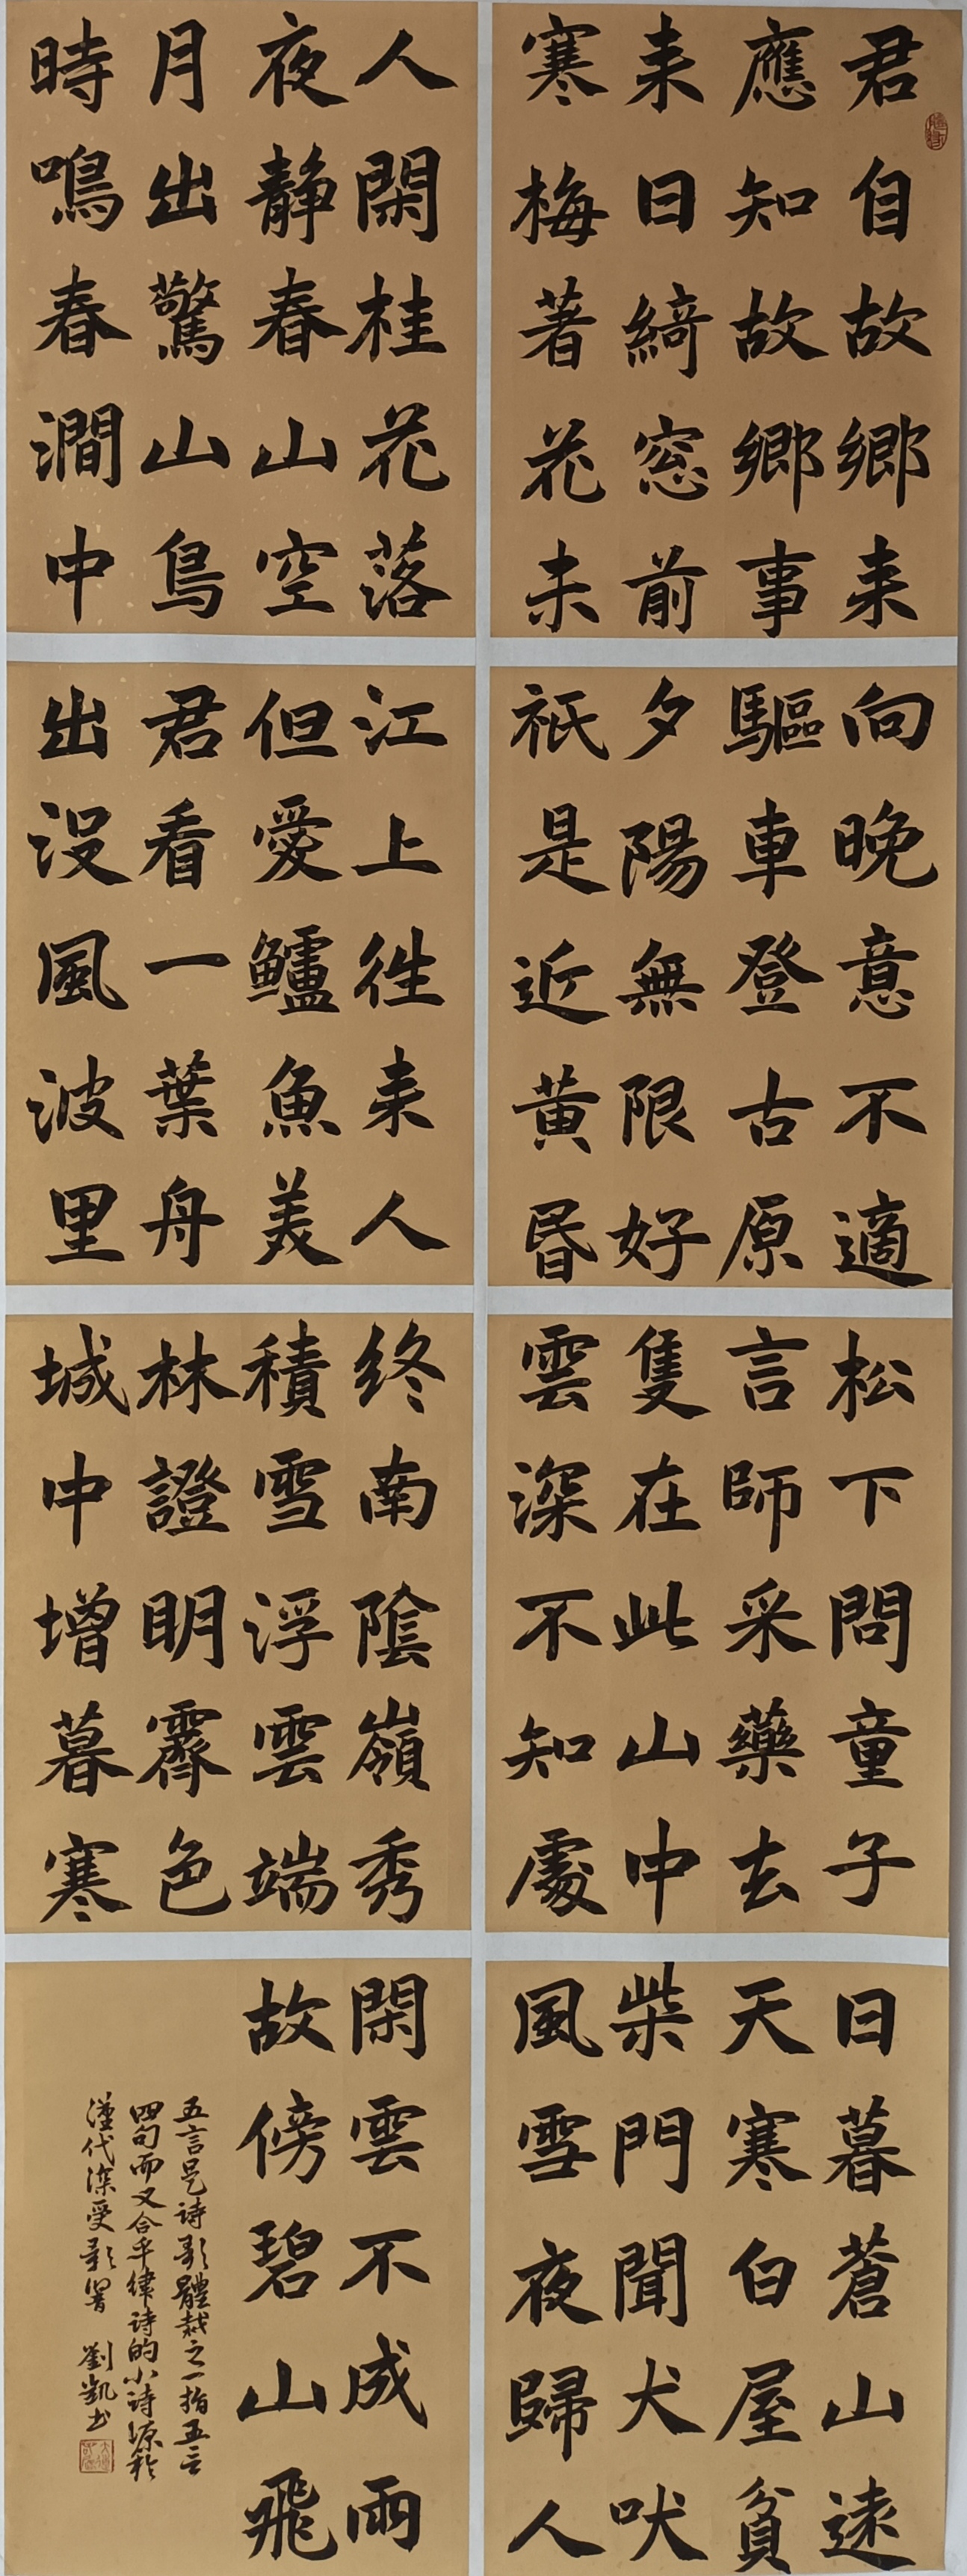 君自故鄉来
應知故鄉事
来日綺窓前
寒梅著花未
向晚意不適
驅車登古原
夕陽無限好
祇是近黄昏
松下問童子
言師采藥去
隻在此山中
雲深不知處
日暮蒼山遠
天寒白屋貧
柴門聞犬吠
風雪夜歸人
人閑桂花落
夜静春山空
月出驚山鳥
時鳴春澗中
江上往来人
但愛鱸魚美
君看一葉舟
出没風波里
终南陰嶺秀
積雪浮雲端
林證明霽色
城中增暮寒
閑雲不成雨
故傍碧山飛
五言是诗歌體裁之一指五言
四句而又合乎律诗的小诗源於
漢代深受影響 劉凱书